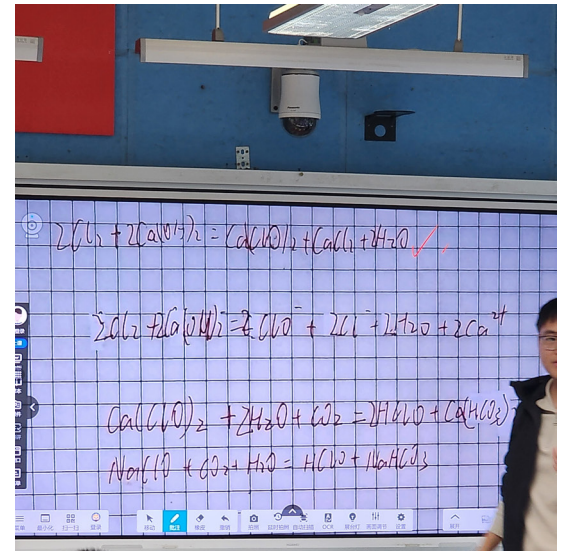 2Cl₂ + 2Ca(OH)₂ = Ca(ClO)₂ + CaCl₂ + 2H₂O ✓
2Cl₂ + 2Ca(OH)₂ = 2ClO⁻ + 2Cl⁻ + 2H₂O + 2Ca²⁺
Ca(ClO)₂ + 2H₂O + CO₂ = 2HClO + Ca(HCO₃)
NaClO + CO₂ + H₂O = HClO + NaHCO₃
最小化 扫一扫 登录 移动 批注 橡皮 撤销 拍照 OCR 展台灯 画面调节 设置 展开